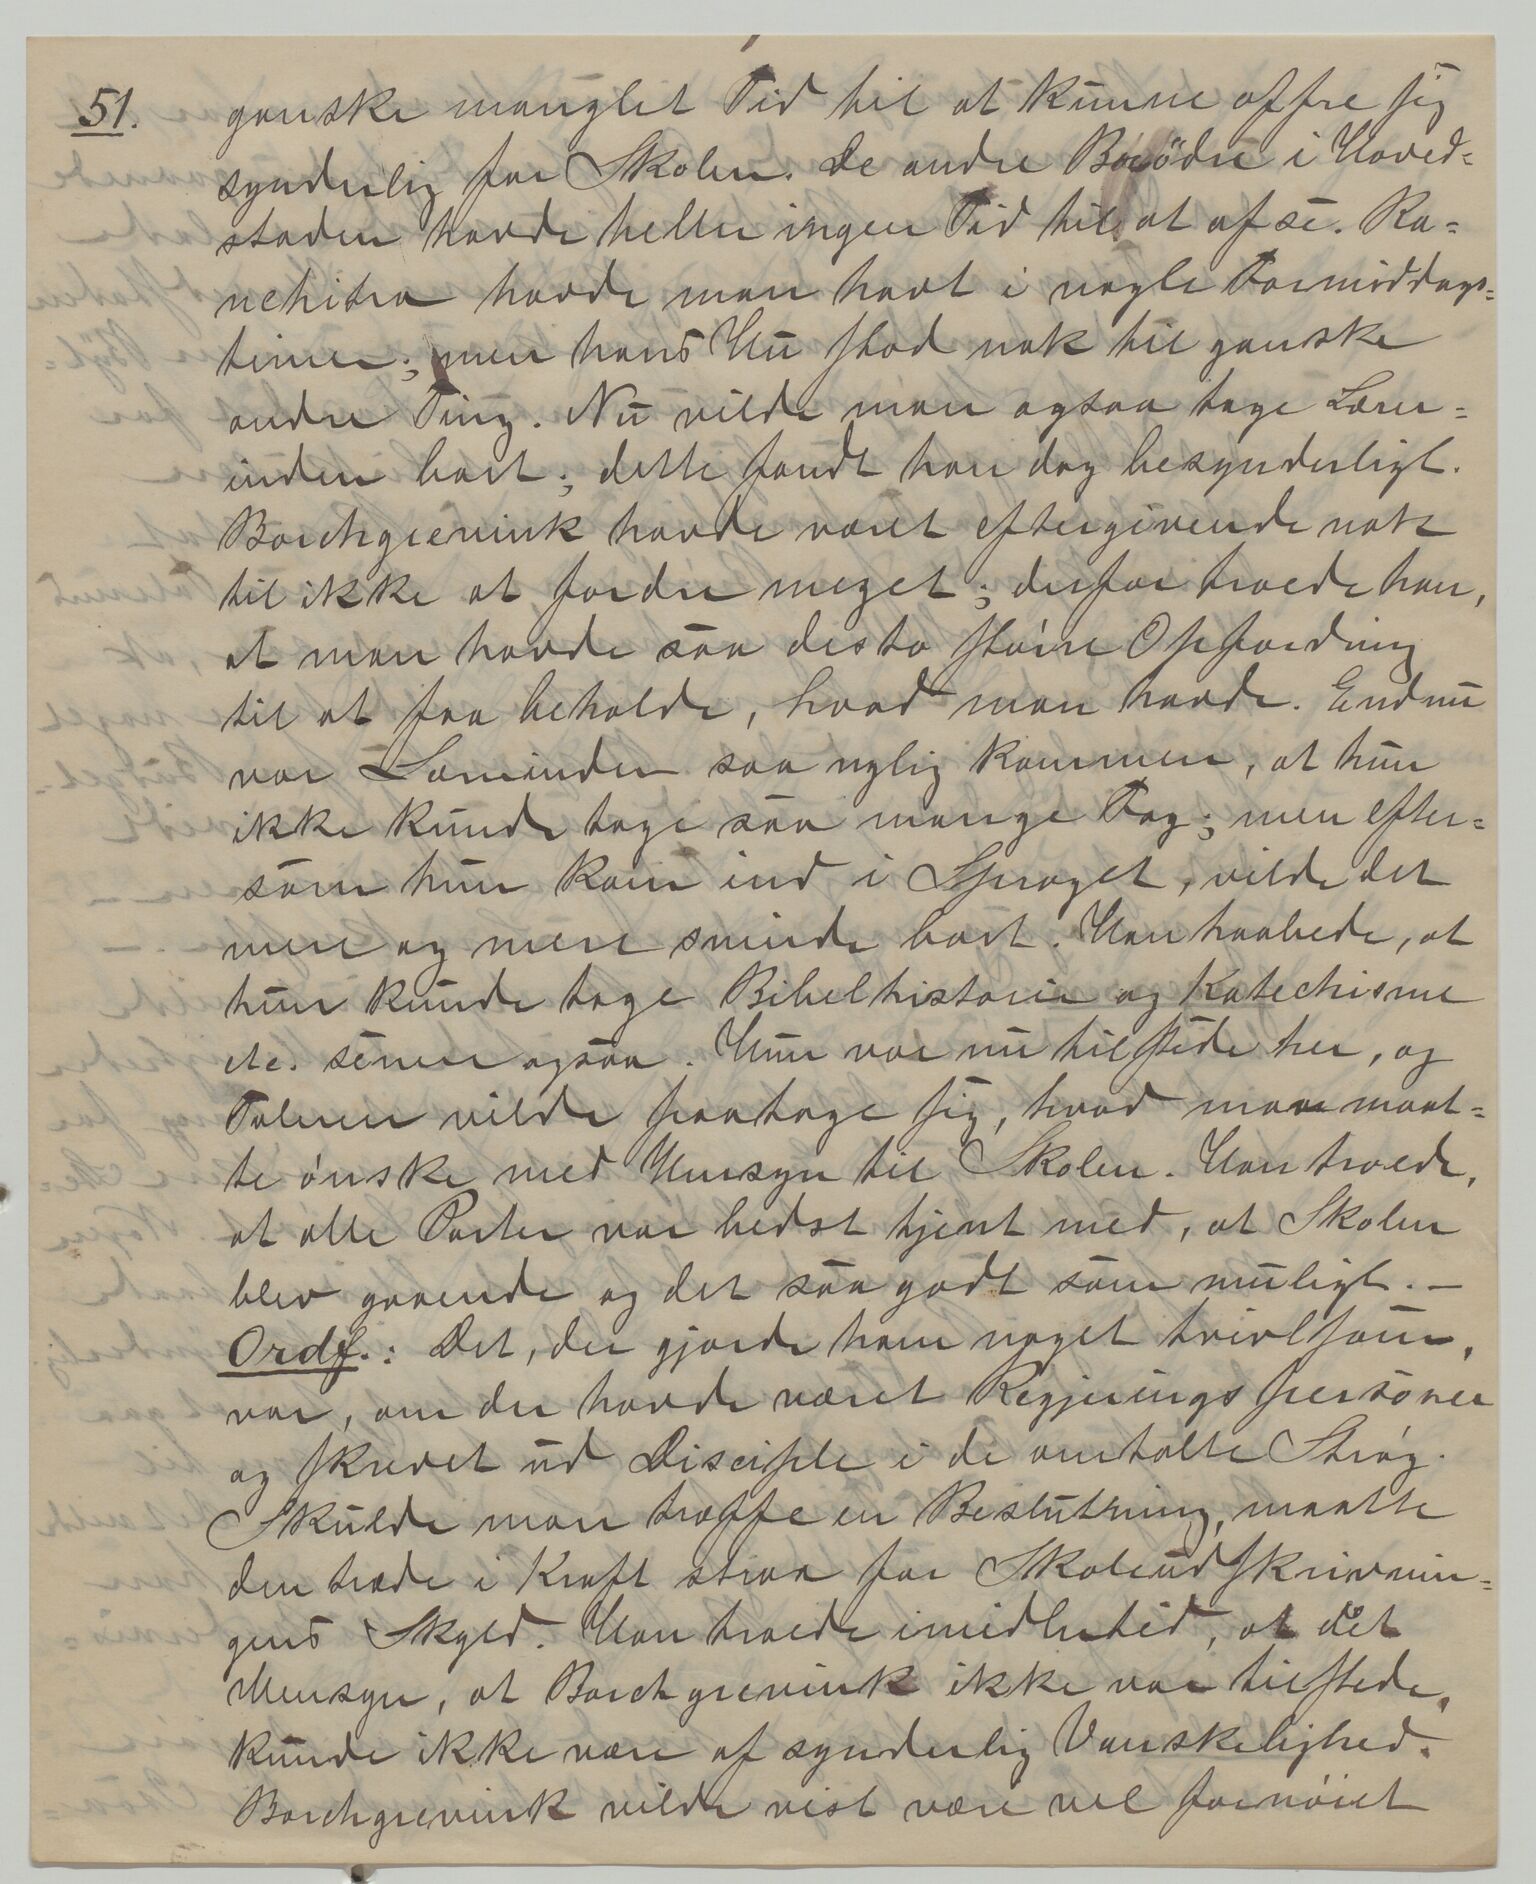 51.
ganske manglet Tid til at kunne offre sig
synderlig for Skolen. De andre Brødre i Hoved-
staden havde heller ingen Tid til at afse. Ra-
nehitra havde man havt i nogle Formiddags-
timer; men hans Hu stod nok til ganske
andre Ting. Nu vilde man ogsaa tage Lærer-
inden bort; dette fandt han dog besynderligt.
Borchgrevink havde været eftergivende nok
til ikke at fordre meget; derfor troede han,
at man havde saa desto større Opfordring
til at faa beholde, hvad man havde. Endnu
var Lærerinden saa nylig kommen, at hun
ikke kunde tage saa mange Fag; men efter-
som hun kom ind i Sproget, vilde det
mere og mere svinde bort. Han haabede, at
hun kunde tage Bibelhistorie og Katechisme
etc. senere ogsaa. Hun var nu tilstede her, og
Taleren vilde paatage sig, hvad man maat-
te ønske med Hensyn til Skolen. Han troede,
at alle Parter var bedst tjent med, at Skolen
blev gaaende og det saa godt som muligt. —
Ordf.: Det, der gjorde ham noget tvivlsom,
var, om der havde været Regjeringspersoner
og skrevet ud Disciple i de omtalte Strøg.
Skulde man træffe en Beslutning, maatte
den træde i Kraft strax for Skoleudskrivnin-
gens Skyld. Han troede imidlertid, at det
Hensyn, at Borchgrevink ikke var tilstede,
kunde ikke være af synderlig Vanskelighed.
Borchgrevink vilde vist være vel fornøiet